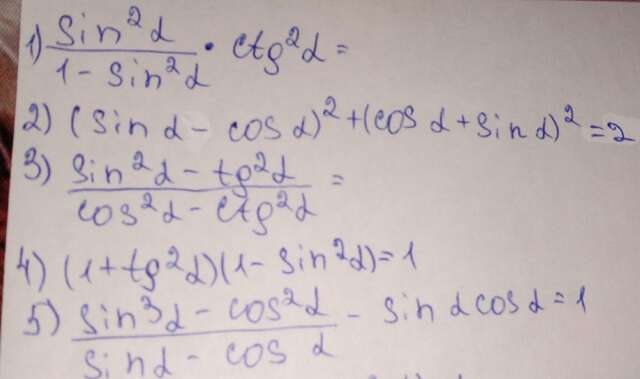 1) sin²α / 1 - sin²α · ctg²α =
2) (sin α - cos α)² + (cos α + sin α)² = 2
3) sin²α - tg²α / cos²α - ctg²α =
4) (1 + tg²α)(1 - sin²α) = 1
5) sin³α - cos²α / sin α - cos α - sin α cos α = 1